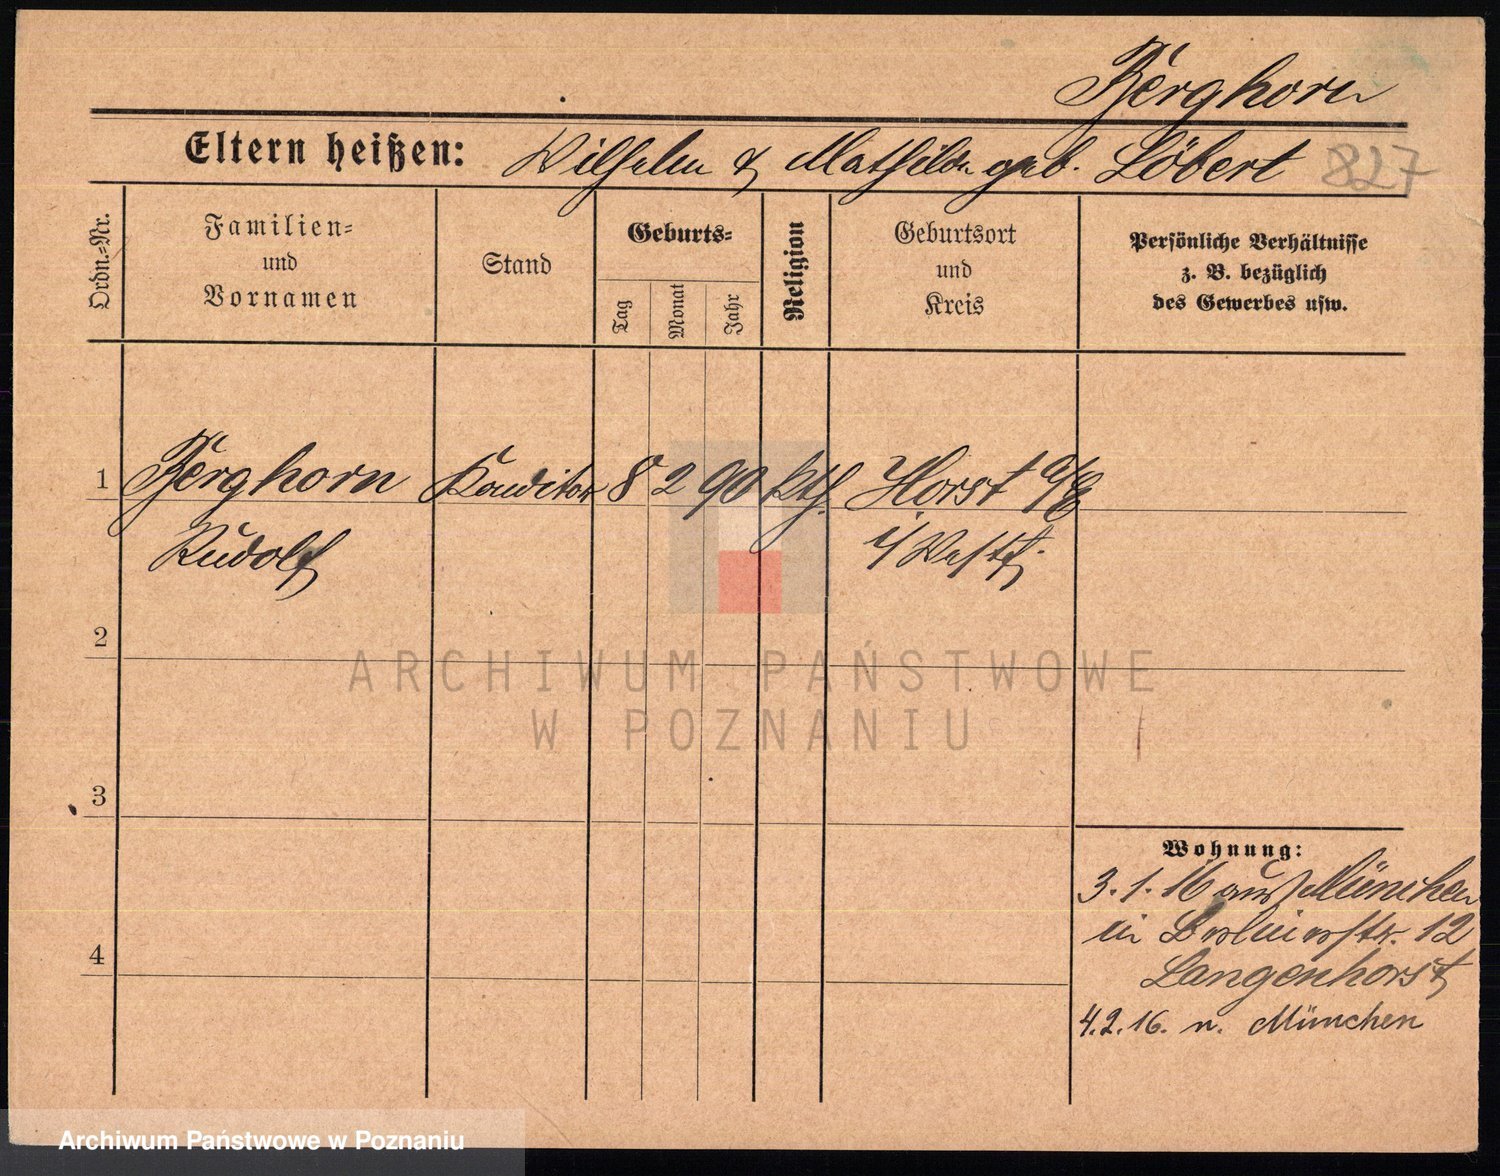 Berghorn
Eltern heißen: Wilhelm & Mathilde geb. Löbert 827
Ordn.-Nr.
Familien-
und
Vornamen
Stand
Geburts-
Tag
Monat
Jahr
Religion
Geburtsort
und
Kreis
Persönliche Verhältnisse
z. B. bezüglich
des Gewerbes usw.
1 Berghorn Konditor 8 2 90 kth. Horst a/E
Rudolf i/Westf.
2
ARCHIWUM PAŃSTWOWE
W POZNANIU
3
Wohnung:
3.1.16 aus München
in Berlinerstr. 12
4
Langenhorst
4.2.16. n. München
Archiwum Państwowe w Poznaniu